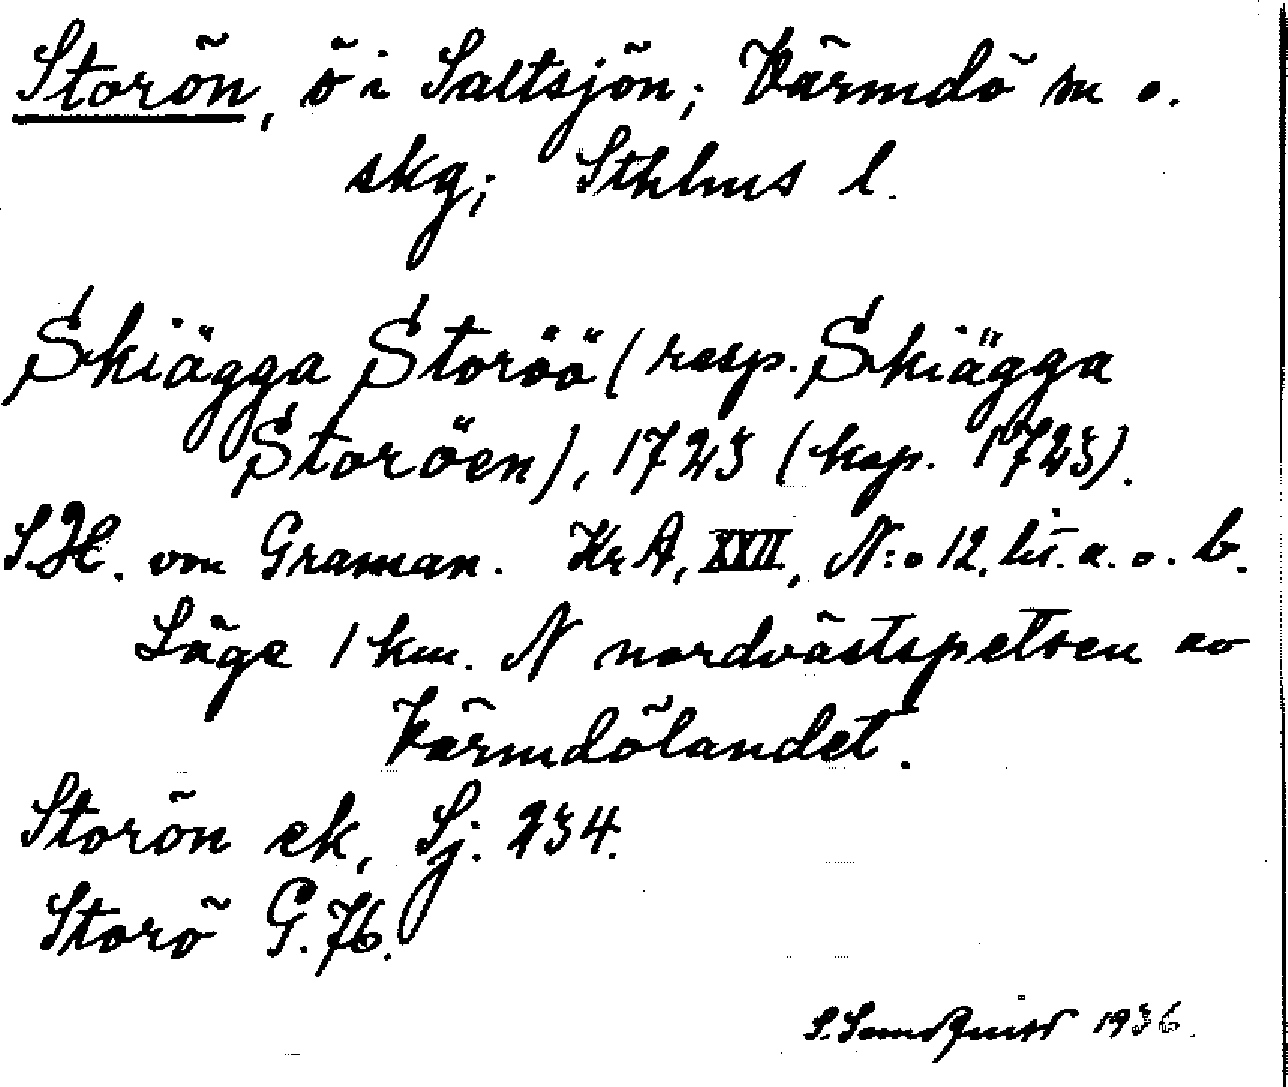 Storön, ö i Saltsjön; Värmdö m o.
skg; Sthlms l.
Skiägga Storöö (resp. Skiägga
Storöen), 1723 (kop. 1723).
S.H. von Graman. Kr A, XXII, N:o 12. lit. a. o. b.
Läge 1 km. N nordvästspetsen av
Värmdölandet.
Storön ek, Sj. 234.
Storö G. 76.
S. Sandquist 1936.